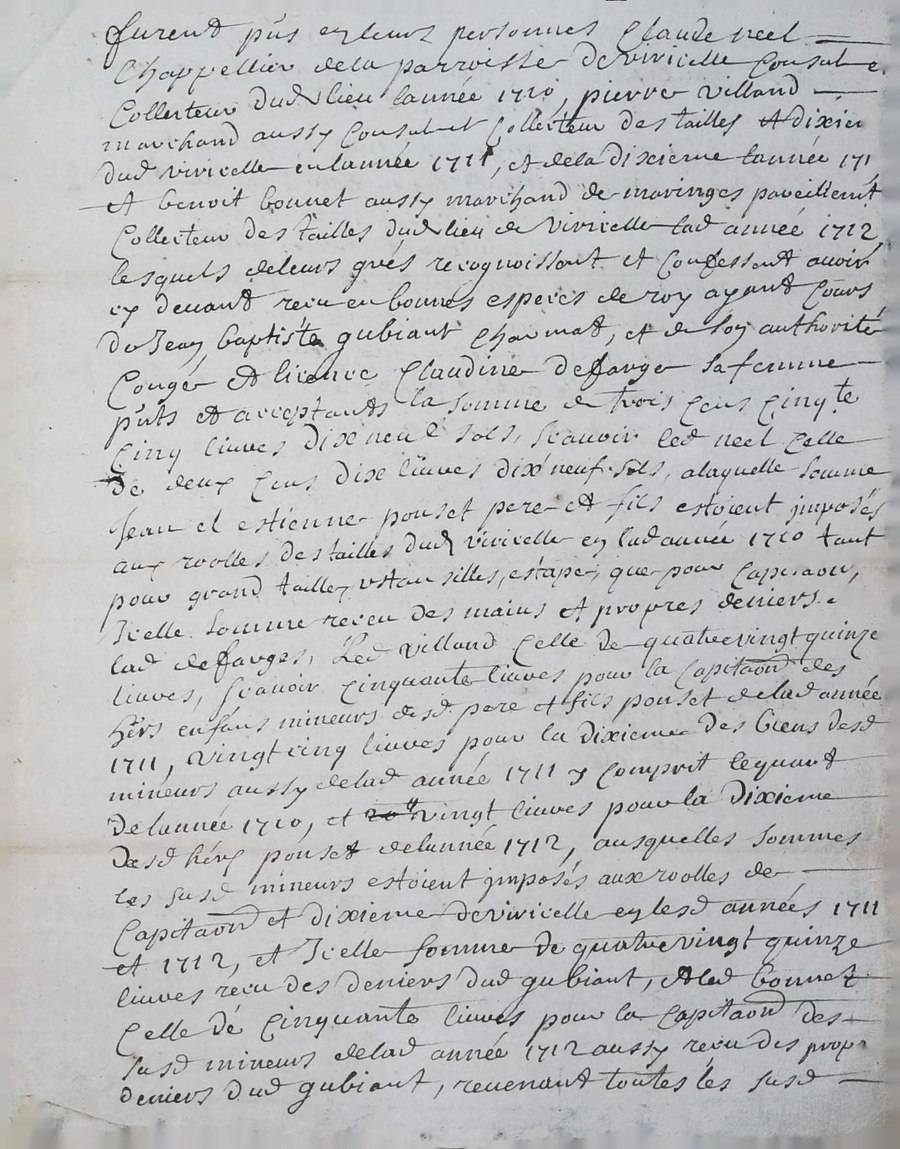 furent pñs en leurs personnes Claude neel
Chappellier de la parroisse de vivicelle Consul e
Collecteur dud lieu lannée 1710, pierre villand
marchand aussy Consul et Collecteur des tailles et dixie
dud vivicelle en lannée 1711, et de la dixieme lannée 171
et benoit bonnet aussy marchand de maringes pareillemt
Collecteur des tailles dud lieu de vivicelle lad année 1712
lesquels de leurs grés recognoissent et Confessent avoir
cy devant recu en bonnes especes de roy ayant Cours
de Jean baptiste gubiant charmat, et de son authorité
Congé et licence Claudine defarge sa femme
pñts et acceptants la somme de trois Cens Cinqte
Cinq livres dix neuf sols, scavoir led neel Celle
de deux Cens dix livres dix neuf sols, a laquelle somme
Jean et estienne ponset pere et fils estoient jmposés
aux roolles des tailles dud vivicelle en lad année 1710 tant
pour grand taille, ustansilles, estape, que pour Capitaon,
Jcelle somme receu des mains et propres deniers
lad defarges, Led villand Celle de quatrevingt quinze
livres, scavoir Cinquante livres pour la Capitaon des
hérs enfans mineurs desd pere et fils ponset de lad année
1711, vingt cinq livres pour la dixieme des biens desd
mineurs aussy de lad année 1711 y comprit le quart
de lannée 1710, et 20ll vingt livres pour la dixieme
desd hérs ponset de lannée 1712, ausquelles sommes
les susd mineurs estoient jmposés aux roolles de
Capitaon et dixieme de vivicelle en lesd années 1711
et 1712, et Jcelle somme de quatre vingt quinze
livres recu des deniers dud gubiant, et led bonnet
Celle de Cinquante livres pour la Capitaon des
susd mineurs de lad année 1712 aussy recu des prop
deniers dud gubiant, revenant toutes les susd